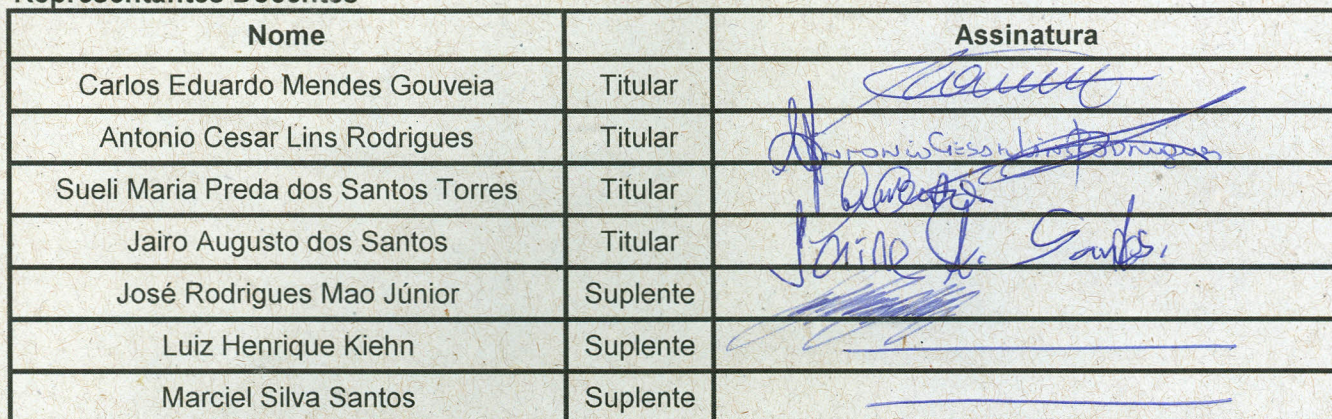 Representantes Docentes
Nome Assinatura
Carlos Eduardo Mendes Gouveia Titular
Antonio Cesar Lins Rodrigues Titular Antonio Cesar Lins Rodrigues
Sueli Maria Preda dos Santos Torres Titular
Jairo Augusto dos Santos Titular Jairo A. Santos.
José Rodrigues Mao Júnior Suplente
Luiz Henrique Kiehn Suplente
Marciel Silva Santos Suplente